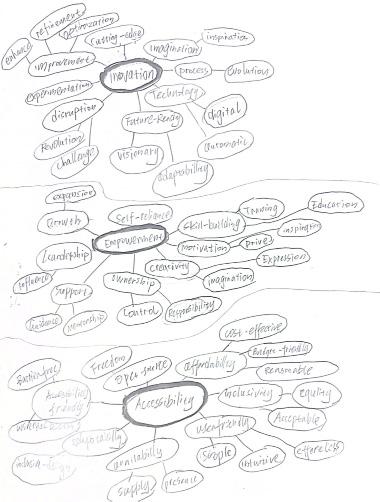 refinement
optimization
enhance
improvement
Cutting-edge
imagination
inspiration
Inovation
process
evolution
experimentation
Technology
disruption
digital
Future-Ready
Revolution
automatic
challenge
visionary
adaptability
expansion
Growth
Self-reliance
Skill-building
Training
Education
Empowerment
Motivation
Drive
inspiring
Leadership
creativity
Expression
Influence
Support
ownership
imagination
Guidance
Mentorship
Control
Responsibility
cost-effective
Freedom
Open-source
affordability
Budget-friendly
reasonable
Barrier-free
Accessibility
friendly
Accessibility
inclusivity
equity
Acceptable
user-friendly
availability
simple
intuitive
effortless
supply
presence